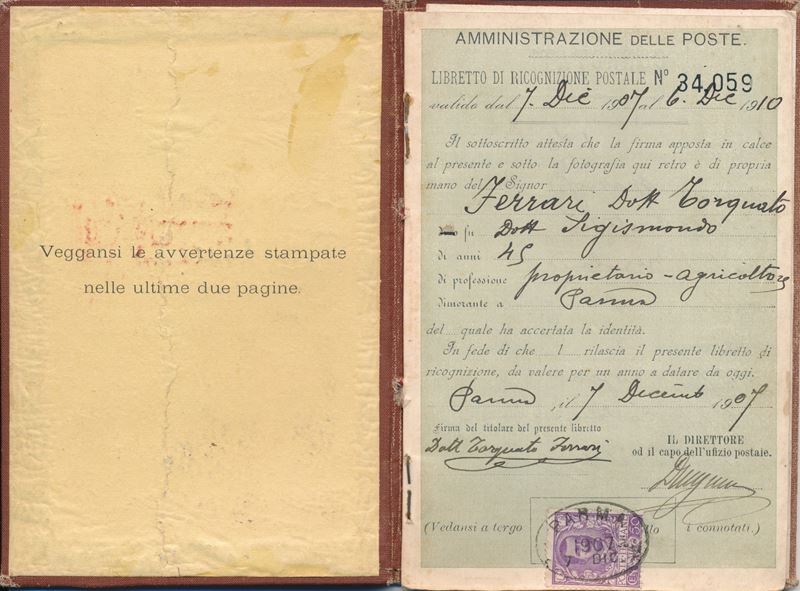 Veggansi le avvertenze stampate
nelle ultime due pagine.
AMMINISTRAZIONE DELLE POSTE.
LIBRETTO DI RICOGNIZIONE POSTALE Nº 34,059
valido dal 7. Dic 1907 al 6. Dic 1910
Il sottoscritto attesta che la firma apposta in calce
al presente e sotto la fotografia qui retro è di propria
mano del Signor
Ferrari Dott Torquato
fu Dott Sigismondo
di anni 45
di professione proprietario - agricoltore
dimorante a Parma
del quale ha accertata la identità.
In fede di che l rilascia il presente libretto di
ricognizione, da valere per un anno a datare da oggi.
Parma, il 7 Decemb 1907
Firma del titolare del presente libretto
Dott Torquato Ferrari
IL DIRETTORE
od il capo dell'ufizio postale.
(Vedansi a tergo i connotati.)
PARMA
1907
7 DIC